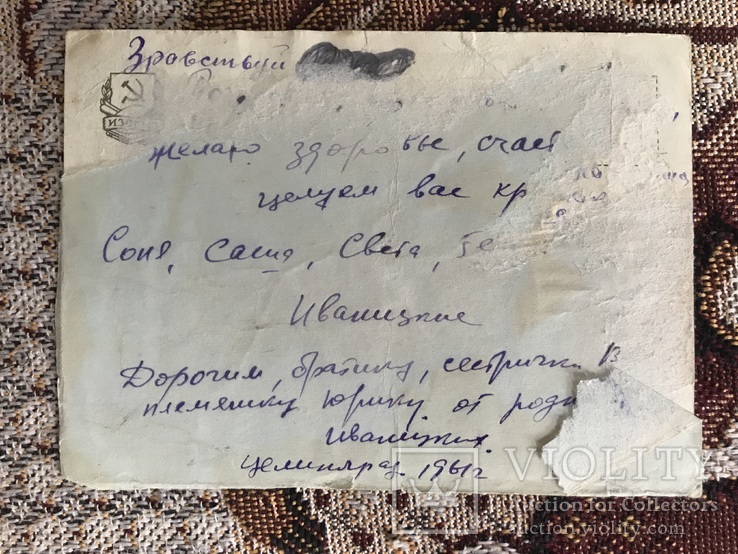 Здравствуй
ИЗО
желаю здоровье, счаст
целуем вас кр
Соня, Саша, Света, Ге
Иваницкие
Дорогим, братику, сестричке В
племяшку Юрику от роди
Иваницких.
Целиноград. 1961г
VIOLITY
Auction for Collectors
auction.violity.com